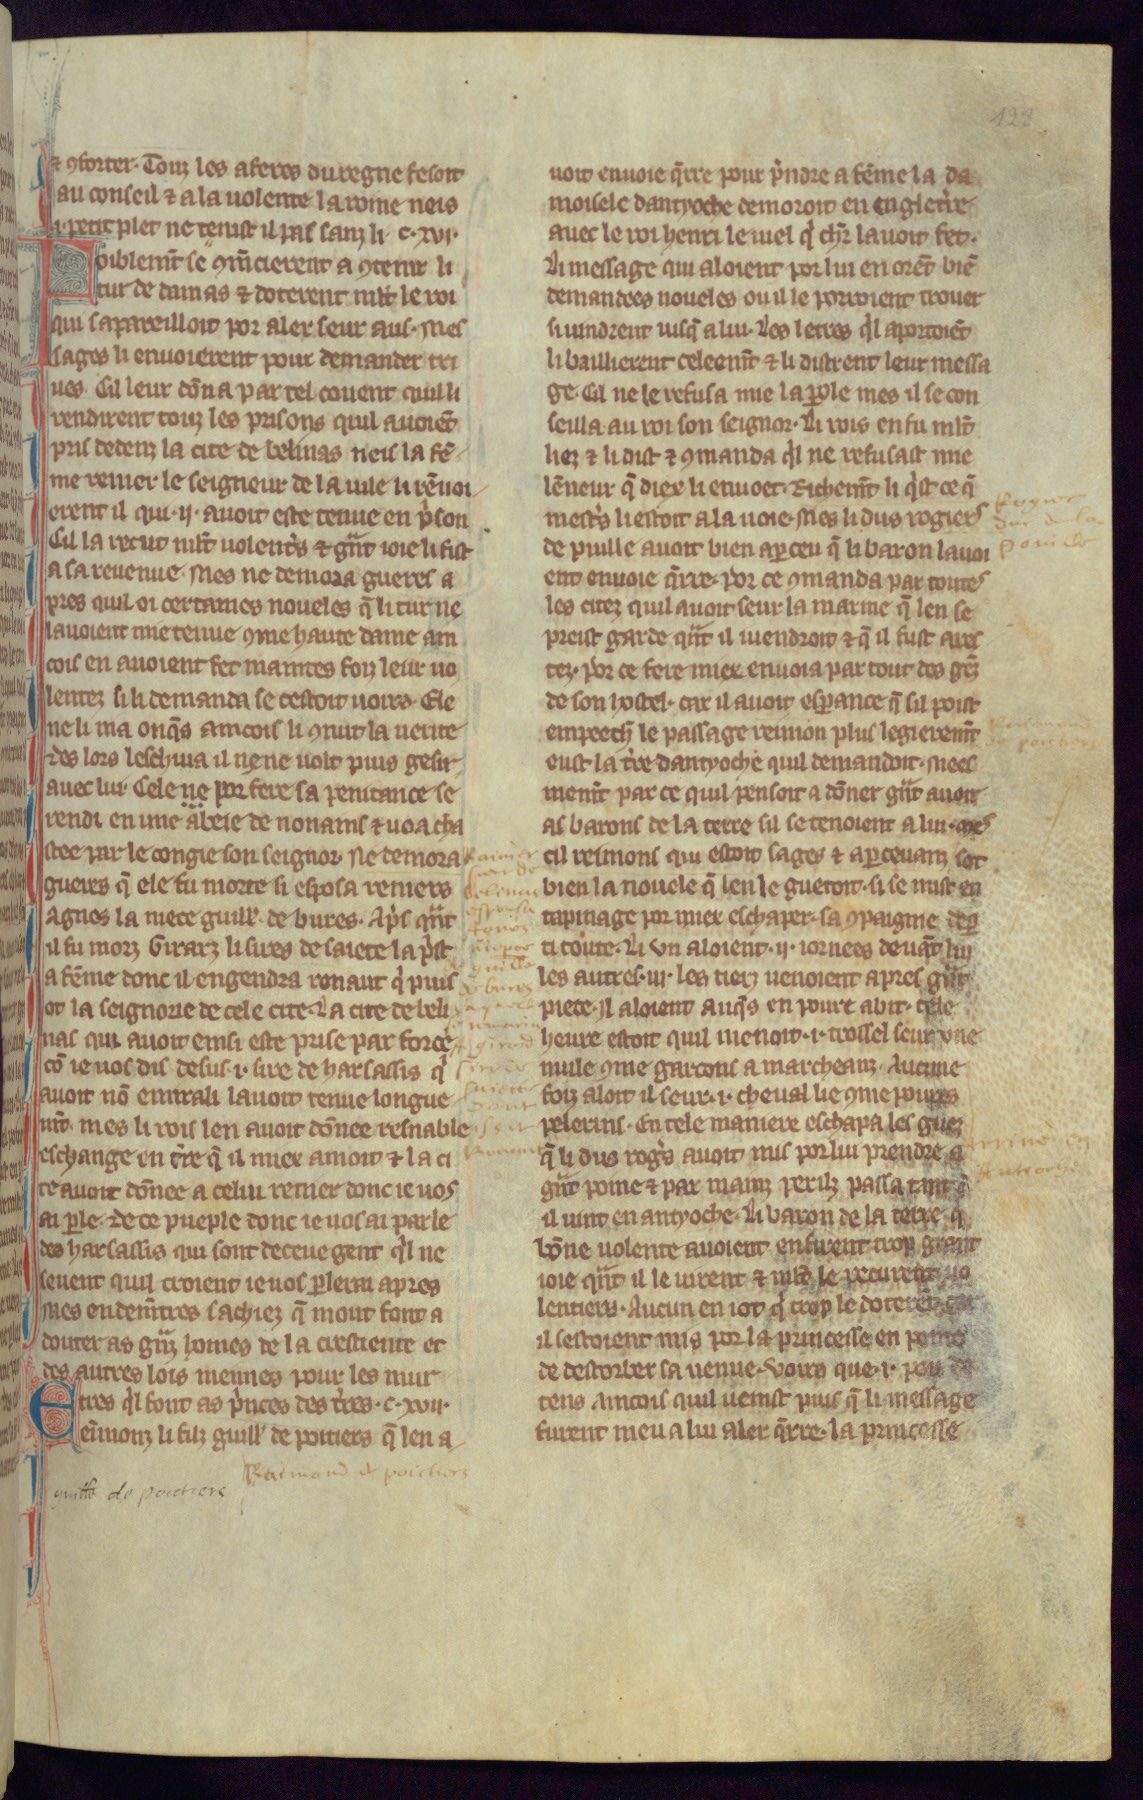 123
⁊ ꝯforter. Touz les aferes du regne fesoit
au conseil ⁊ a la uolente la roine neis
.i. petit plet ne tenist il pas sanz li .c. xvi.
Foiblem̃t se ꝯm̃cierent a ꝯtenir li
tur de damas ⁊ doterent ml̃t le roi
qui sapareilloit por aler seur aus. Mes
sages li enuoierent pour demander tri
ues. Cil leur dõna par tel couent quil li
rendirent touz les prisons quil auoiẽt
pris dedenz la cite de belinas neis la fẽ
me renier le seigneur de la uile li rẽuoi
erent il qui .ij. auoit este tenue en p̃son
Cil la recut ml̃t uolent̾s ⁊ g̃nt ioie li fist
a sa reuenue. Mes ne demora gueres a
pres quil oi certaines noueles q̃ li tur ne
lauoient mie tenue ꝯme haute dame ain
cois en auoient fet maintes foiz leur uo
lentez si li demanda se cestoit uoirs. Ele
ne li nia onq̃s aincois li ꝯnut la uerite
des lors leschiua il ne ne uolt puis gesir
auec lui. Cele ne por fere sa penitance se
rendi en une abeie de nonains ⁊ uoa cha
stee par le congie son seignor. Ne demora
gueres q̃ ele fu morte si esposa reniers
Agnes la niece guill'. de bures. Ap̃s q̃nt
il fu morz Girarz li sires de saiete la p̃st
a fẽme donc il engendra renaut q̃ puis
ot la seignorie de cele cite. La cite de beli
nas qui auoit einsi este prise par force
cõ ie uos dis desus .i. sire de harsassis q̃
auoit nõ emirali lauoit tenue longue
m̃t. mes li rois len auoit dõnee resnable
eschange en t̃re q̃ il miex amoit ⁊ la ci
te auoit dõnee a celui renier donc ie uos
ai ꝑle. De ce pueple donc ie uos ai parle
des harsassis qui sont deceue gent q̃l ne
seuent quil croient ie uos ꝑlerai apres
Mes endem̃tres sachiez q̃ mout font a
douter as g̃nz homes de la crestiente et
des autres lois meimes pour les mur
tres q̃l font as p̃nces des t̃res .c. xvii.
Reimonz li filz guill' de poitiers q̃ len a
Raimond de poictiers
guille de poictiers
uoit enuoie q̃rre pour p̃ndre a fẽme la da
moisele dantyoche demoroit en englet̾re
auec le roi henri le uiel q̃ chr̃ lauoit fet.
Li message qui aloient por lui en orẽt biẽ
demandees noueles ou il le porroient trouer
si uindrent iusq̃ a lui. Les letres q̃l aportoiẽt
li baillierent celeem̃t ⁊ li distrent leur messa
ge. Cil ne le refusa mie la ꝑole mes il se con
seilla au roi son seignor. Li rois en fu ml̃t
liez ⁊ li dist ⁊ ꝯmanda q̃l ne refusast mie
lẽneur q̃ diex li enuoet. Richem̃t li q̃st ce q̃
mest̾s li estoit a la uoie. Mes li dus rogiers
de puille auoit bien aꝑceu q̃ li baron lauoi
ent enuoie q̃rre. Por ce ꝯmanda par toutes
les citez quil auoit seur la marine q̃ len se
preist garde q̃nt il uiendroit ⁊ q̃ il fust ares
tez. Por ce fere miex enuoia par tout des gẽz
de son hostel. car il auoit esperance q̃ sil poist
empeech̾ le passage reimon plus legierem̃t
eust la t̃re dantyoche quil demandoit. Mees
mem̃t par ce quil pensoit a dõner g̃nt auoir
as barons de la terre sil se tenoient a lui. Mes
cil reimons qui estoit sages ⁊ aꝑceuanz sot
bien la nouele q̃ len le guetoit. si se mist en
tapinage por miex eschaper. sa ꝯpaignie deꝑ
ti toute. Li un aloient .ij. iornees deuãt lui
les autres .iij. les tierz uenoient apres g̃nt
piece. Il aloient auq̃s en poure abit. cele
heure estoit quil menoit .i. trossel seur une
mule ꝯme garcons a marcheanz. Aucune
foiz aloit il seur .i. cheual lie ꝯme poures
pelerins. En tele maniere eschapa les guez
q̃ li dus rog̃s auoit mis por lui prendre a
g̃nt poine ⁊ par mainz perilz passa tant q̃
il uint en antyoche. Li baron de la terre q̃
bõne uolente auoient en firent trop grant
ioie q̃nt il le uirent ⁊ ml̃t le recurent uo
lentiers. Aucun en iot q̃ trop le doterẽt car
il sestoient mis por la princesse en poine
de destorber sa uenue. Voirs que .i. pou de
tens aincois quil uenist puis q̃ li message
furent meu a lui aler q̃rre. la princesse
Rogier
duc de la
pouille